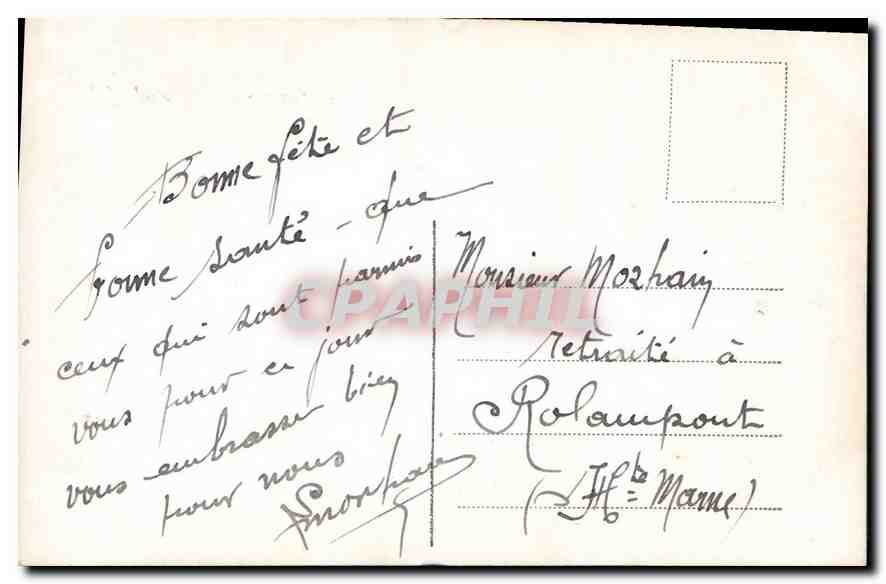 Bonne fête et
bonne santé - que
ceux qui sont parmis
vous pour ce jour
vous embrasser bien
pour nous
Monsieur
retraité à
Rolampont
(Hte Marne)
CPAPHIL